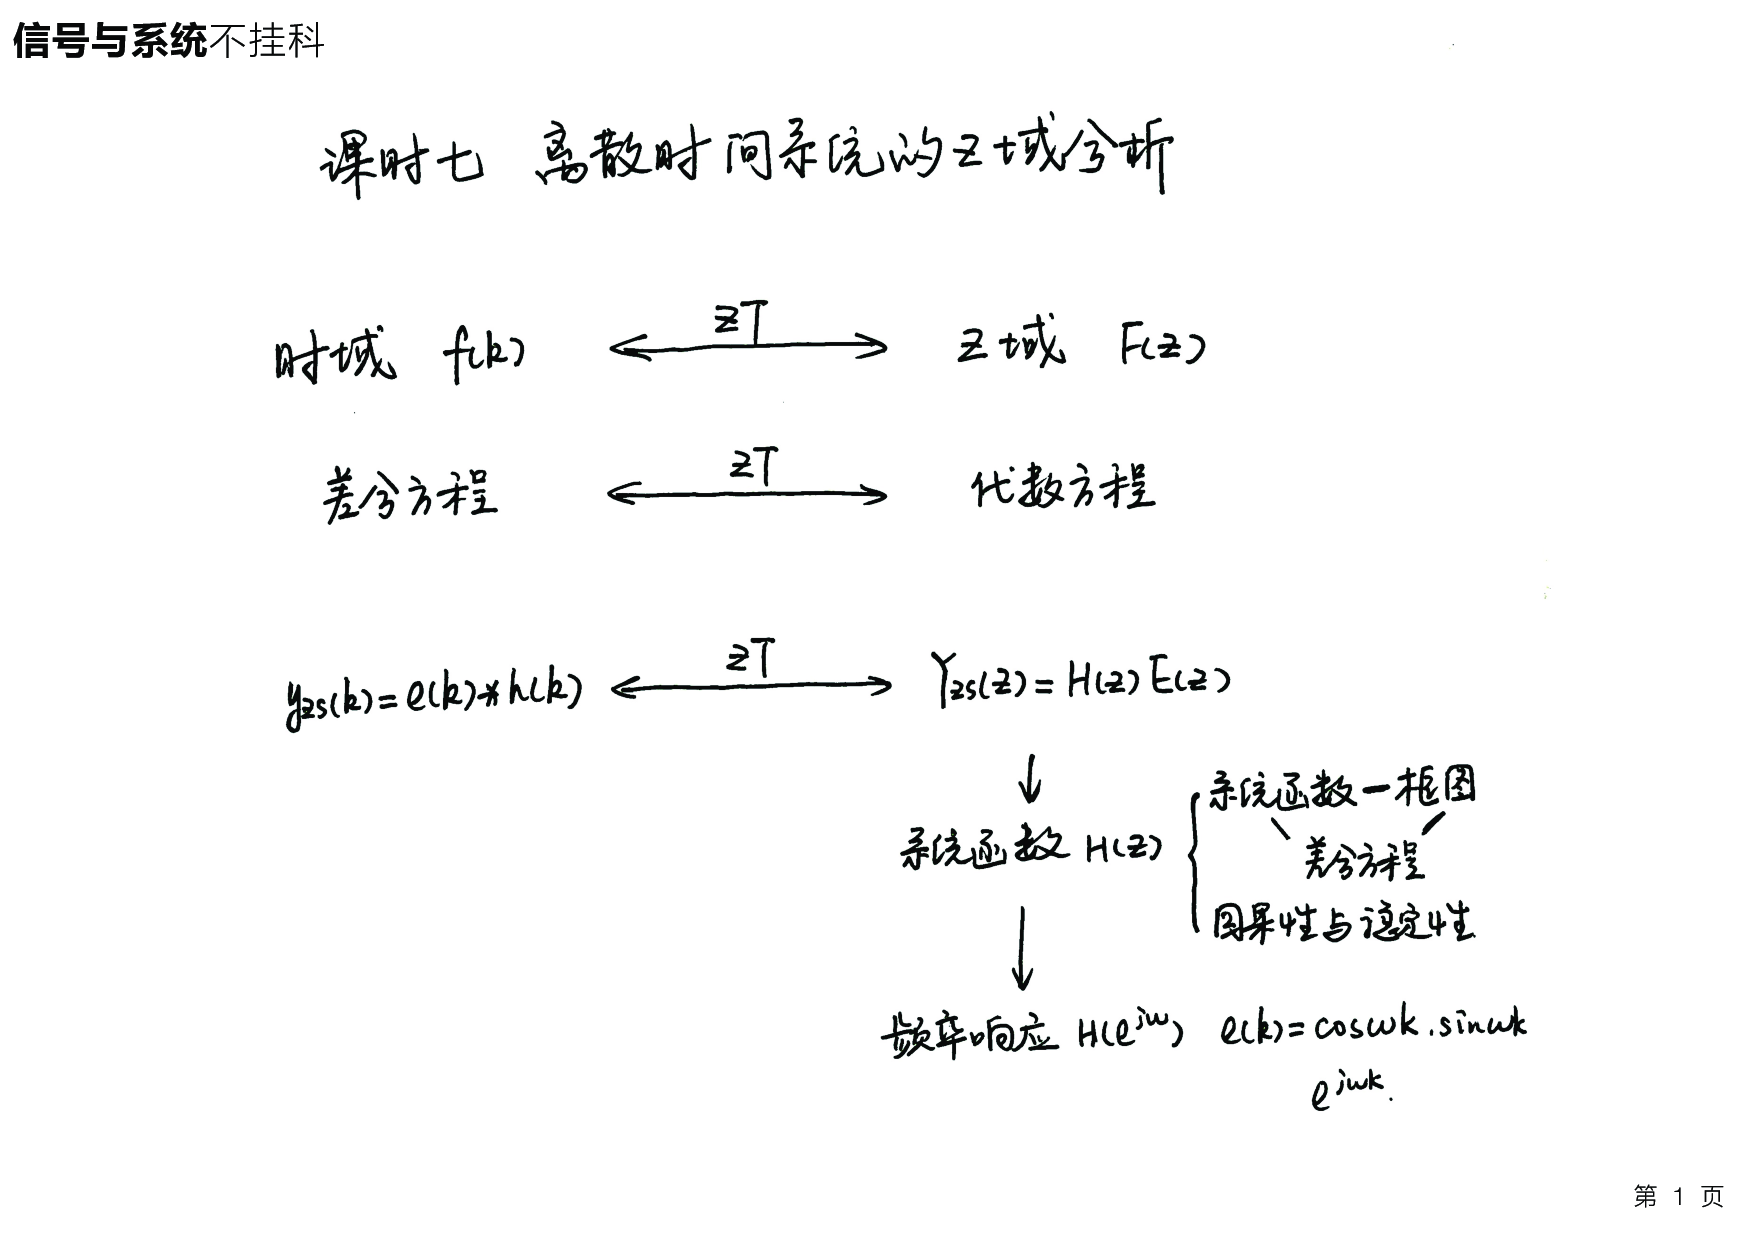 信号与系统不挂科
课时七 离散时间系统的Z域分析
时域 f(k) ZT Z域 F(z)
差分方程 ZT 代数方程
yzs(k)=e(k)*h(k) ZT Yzs(z)=H(z)E(z)
系统函数一框图
系统函数 H(z)
差分方程
因果性与稳定性
频率响应 H(e^jω) e(k)=cosωk.sinωk
e^jωk.
第 1 页